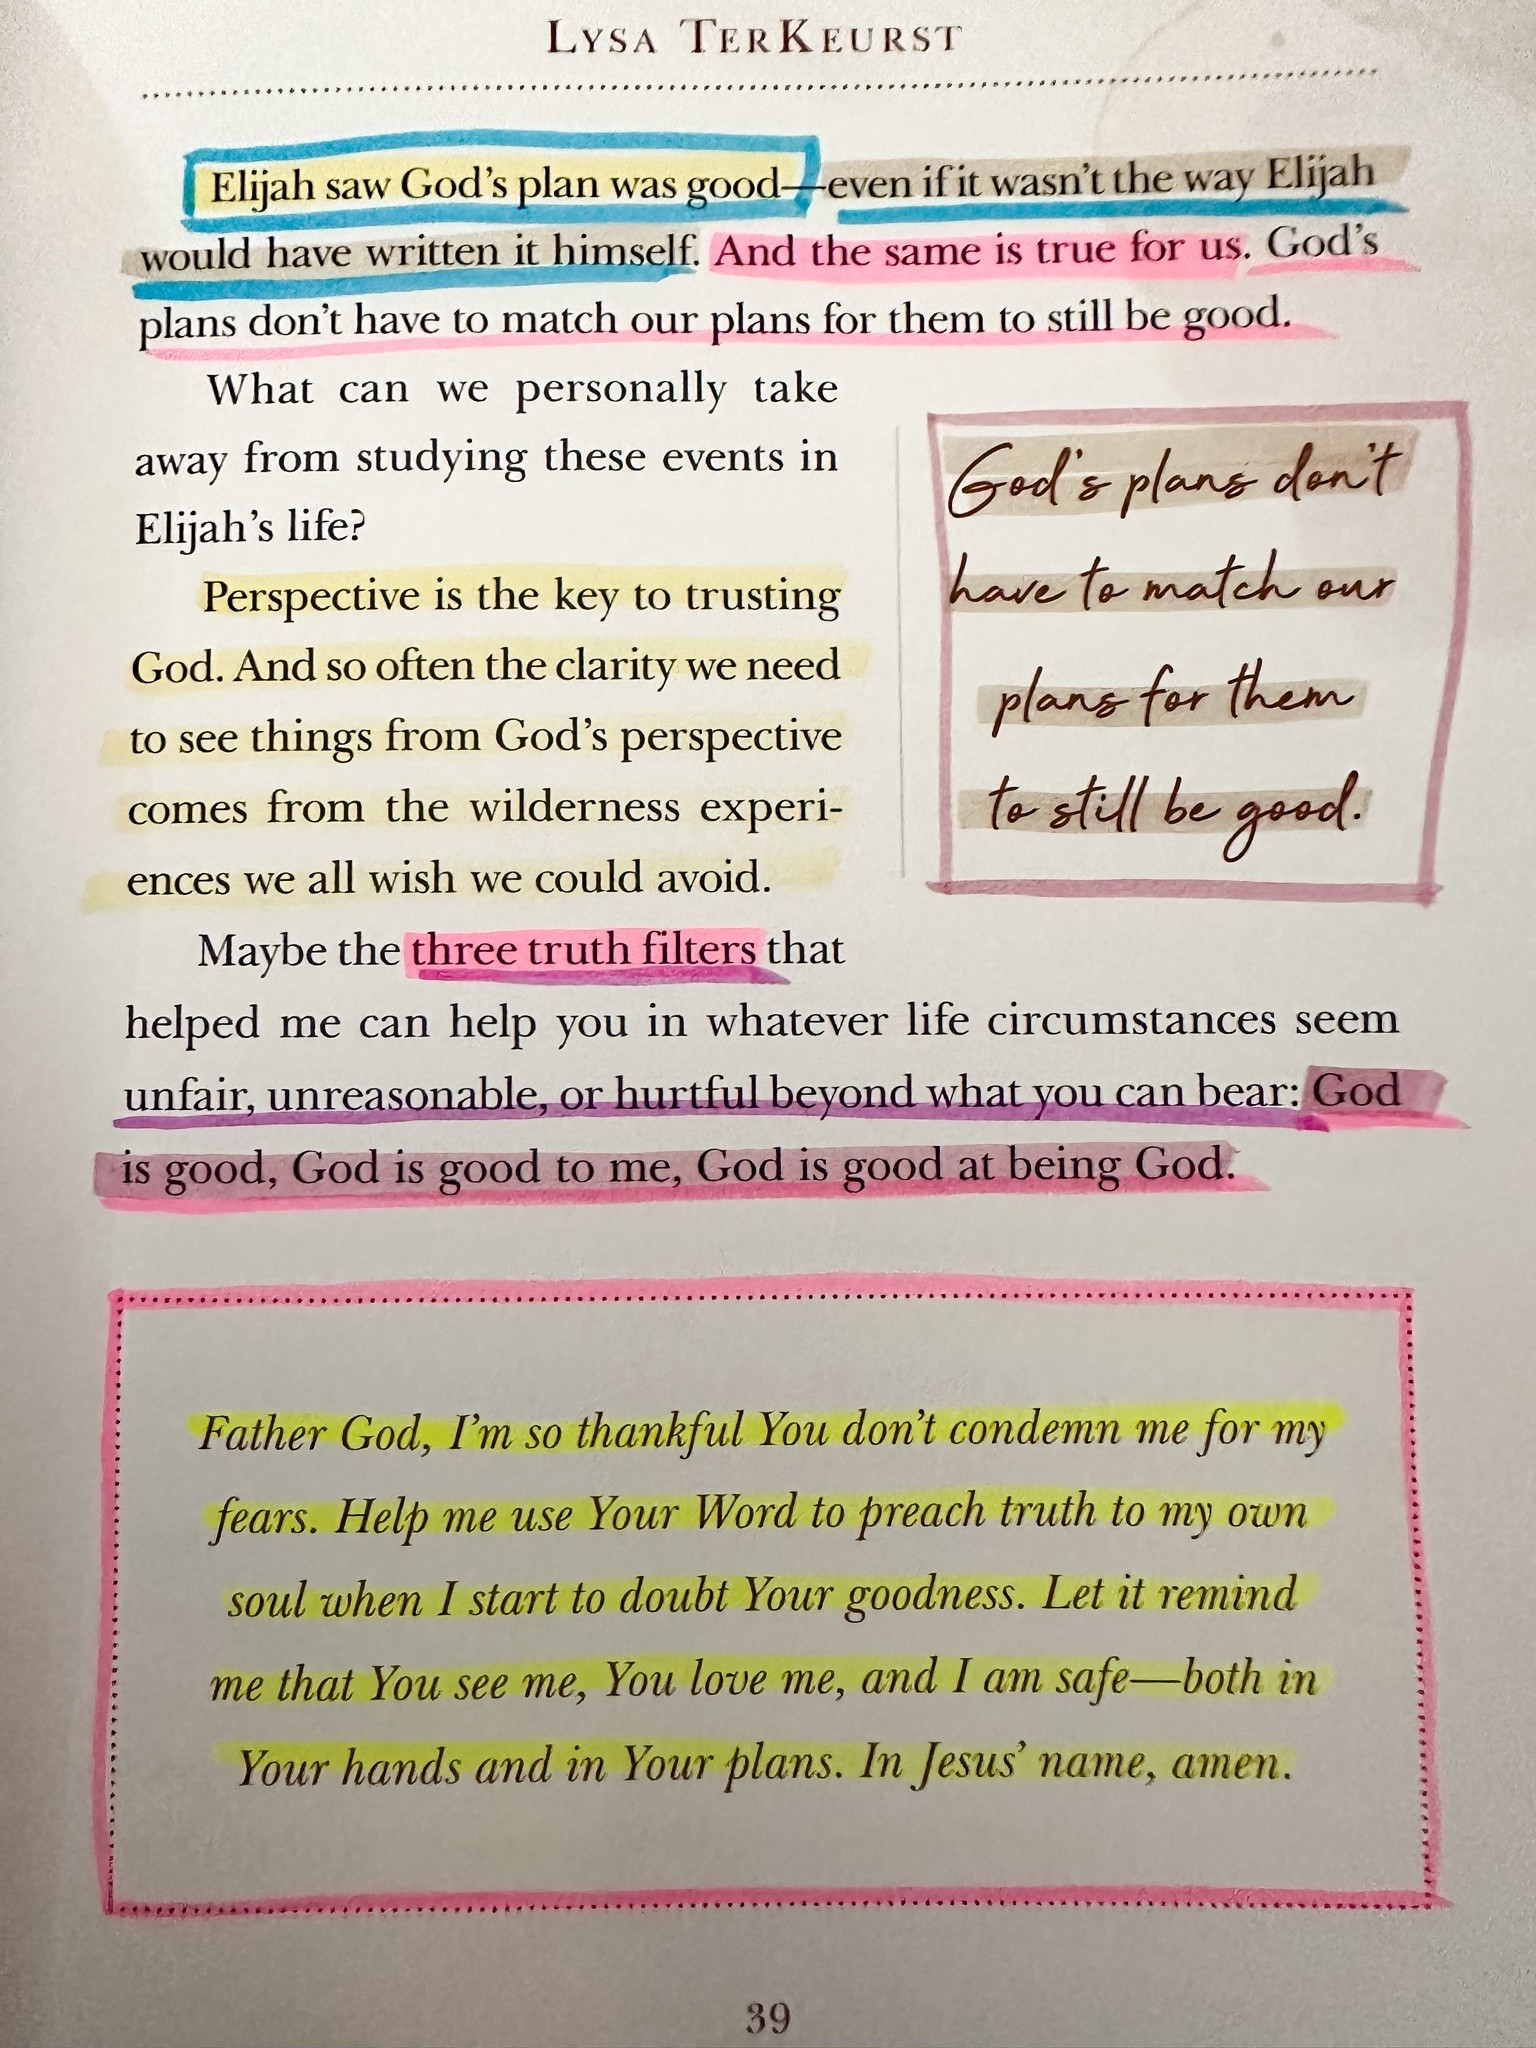 LYSA TERKEURST
Elijah saw God's plan was good—even if it wasn't the way Elijah
would have written it himself. And the same is true for us. God's
plans don't have to match our plans for them to still be good.
What can we personally take
away from studying these events in
Elijah's life?
Perspective is the key to trusting
God. And so often the clarity we need
to see things from God's perspective
comes from the wilderness experi-
ences we all wish we could avoid.
God's plans don't
have to match our
plans for them
to still be good.
Maybe the three truth filters that
helped me can help you in whatever life circumstances seem
unfair, unreasonable, or hurtful beyond what you can bear: God
is good, God is good to me, God is good at being God.
Father God, I'm so thankful You don't condemn me for my
fears. Help me use Your Word to preach truth to my own
soul when I start to doubt Your goodness. Let it remind
me that You see me, You love me, and I am safe—both in
Your hands and in Your plans. In Jesus' name, amen.
39